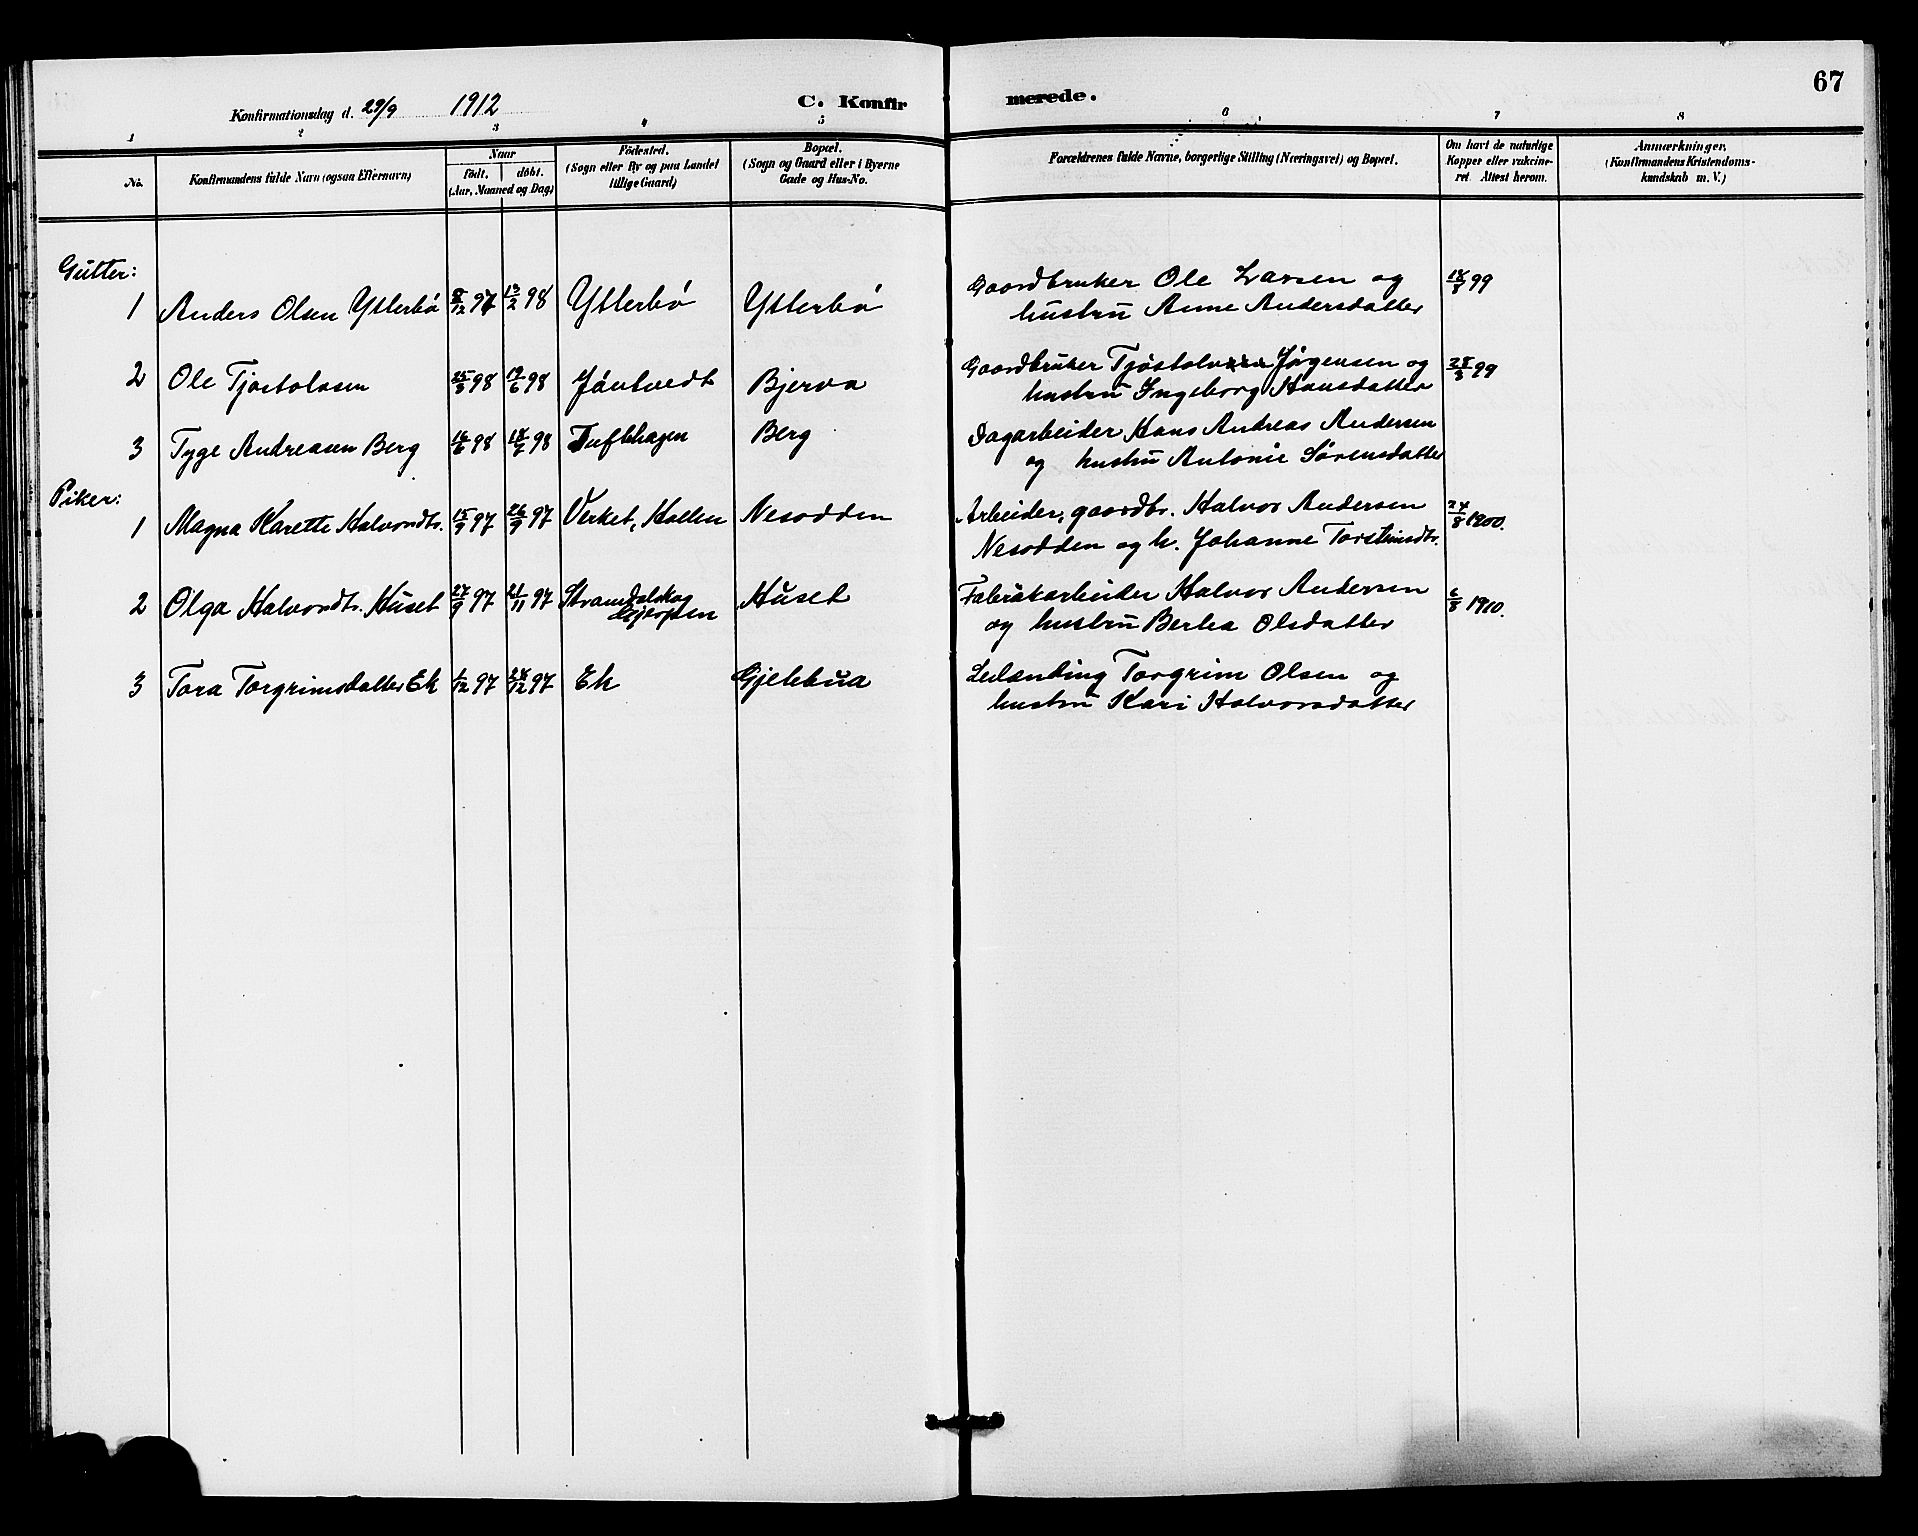 67
Konfirmationsdag d. 29/9 1912 C. Konfirmerede.
1 2 3 4 5 6 7 8
No.
Konfirmandens fulde Navn (ogsaa Efternavn)
Naar
födt. döbt.
(Aar, Maaned og Dag)
Födested.
(Sogn eller By og paa Landet
tillige Gaard)
Bopæl.
(Sogn og Gaard eller i Byerne
Gade og Hus-No.
Forældrenes fulde Navne, borgerlige Stilling (Næringsvei) og Bopæl.
Om havt de naturlige
Kopper eller vakcine-
ret. Attest herom.
Anmærkninger,
(Konfirmandens Kristendoms-
kundskab m. V.)
Gutter:
1 Anders Olsen Ytterbø 8/12 97 13/2 98 Ytterbø Ytterbø Gaardbruker Ole Larsen og 18/8 99
hustru Anne Andersdatter
2 Ole Tjostolvsen 25/3 98 19/6 98 Jåntvedt Bjerva Gaardbruker Tjøstolv Jørgensen og 28/3 99
hustru Ingeborg Hansdatter
3 Tyge Andreasen Berg 16/6 98 98 Tuftehagen Berg Dagarbeider Hans Andreas Andersen
og hustru Antonie Sørensdatter
Piker:
1 Magna Karette Halvorsdtr. 15/9 97 26/9 97 Verket, Hollen Nesodden Arbeider, gaardbr. Halvor Andersen 24/8 1900.
Nesodden og h. Johanne Torsteinsdtr.
2 Olga Halvorsdtr. Huset 27/9 97 21/11 97 Huset Fabrikarbeider Halvor Andersen 6/8 1910.
og hustru Berthea Olsdatter
3 Tora Torgrimsdatter Ek 1/12 97 28/12 97 Ek Gjelebua Leilænding Torgrim Olsen og
hustru Kari Halvorsdatter